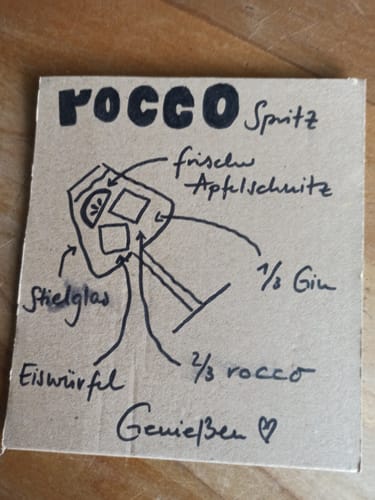 rocco Spritz
frischer
Apfelschnitz
1/3 Gin
Stielglas
Eiswürfel
2/3 rocco
Genießen ♡